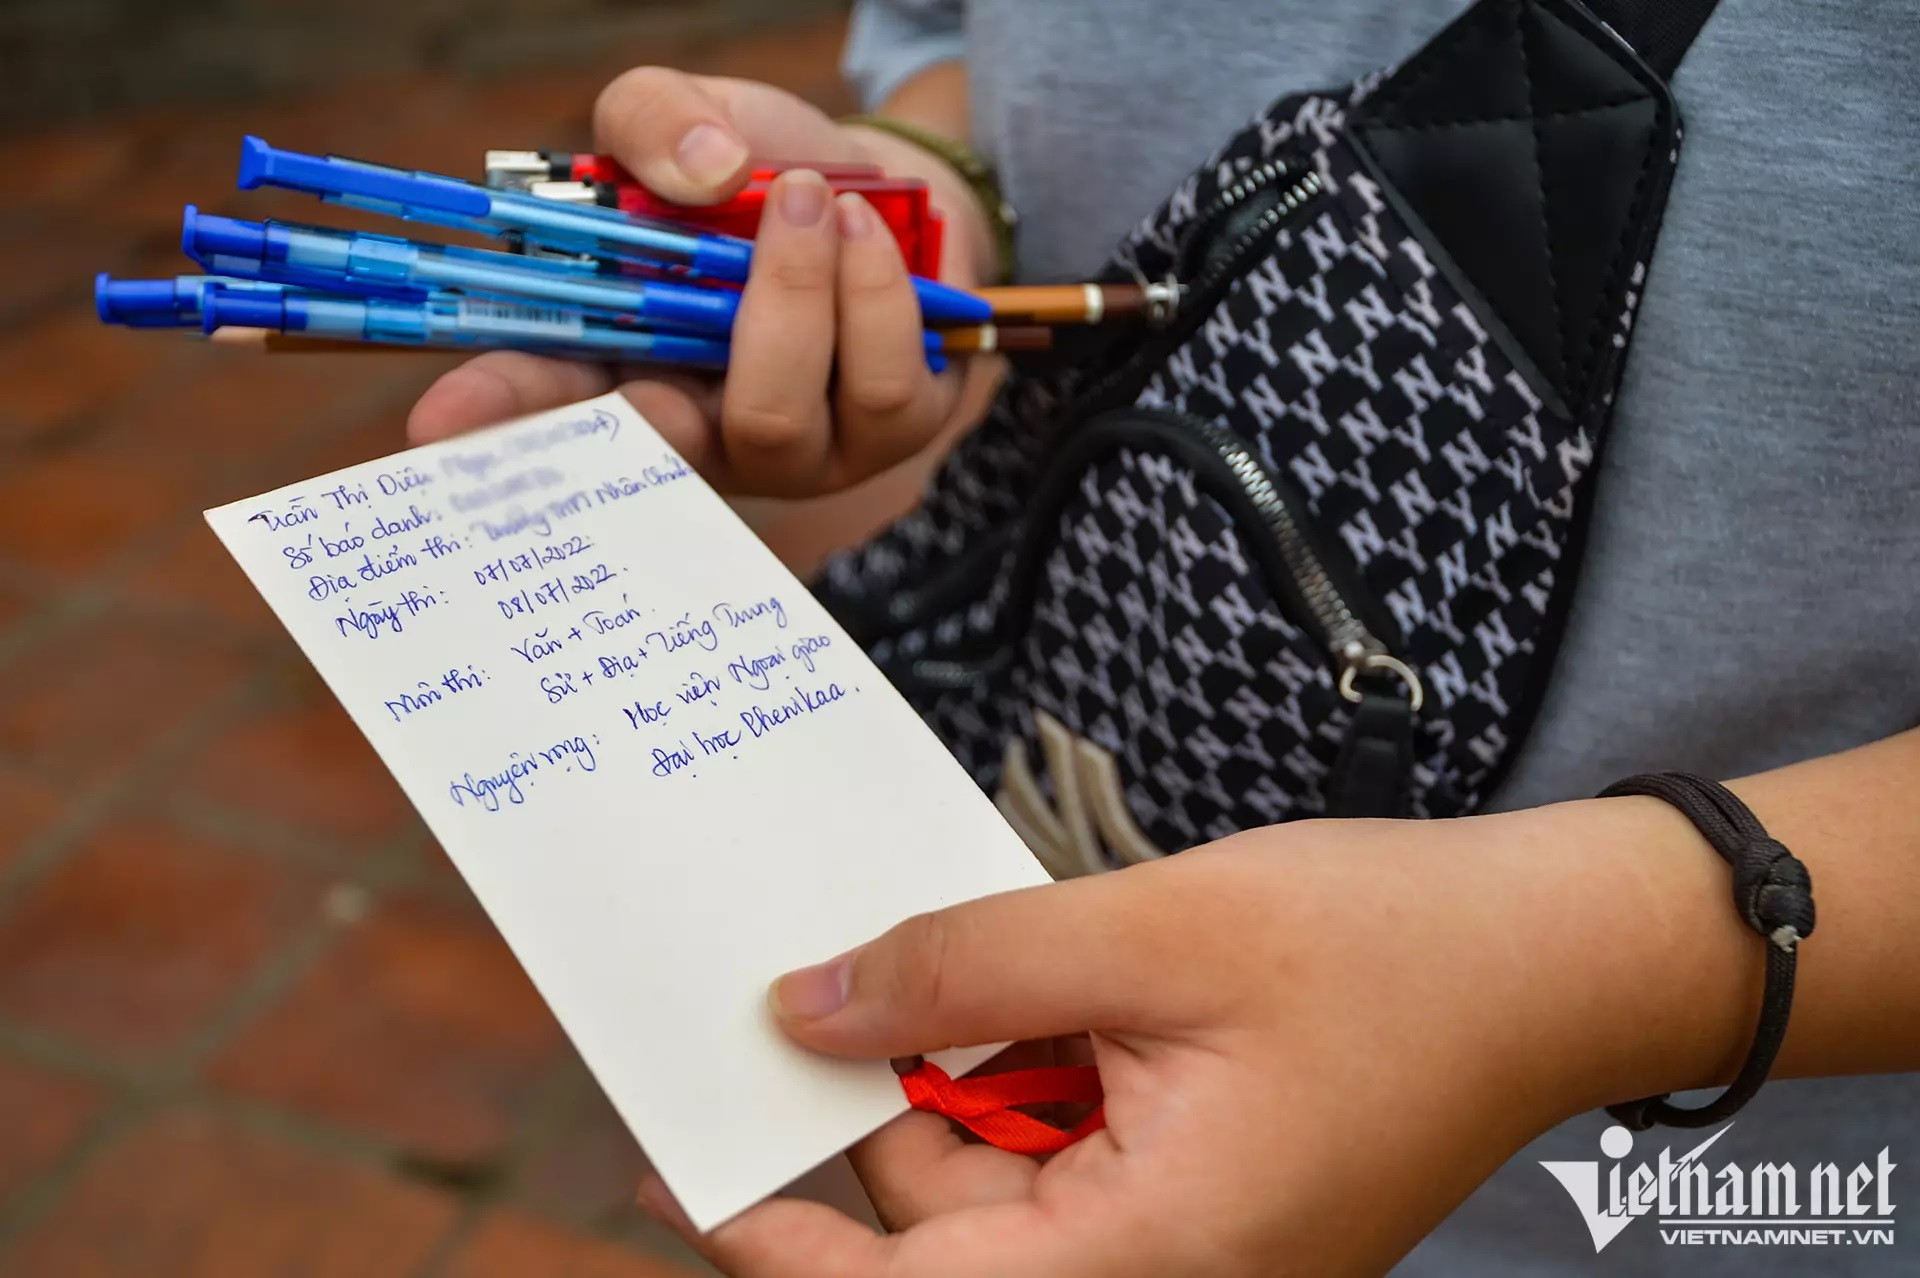 Trần Thị Diệu
Số báo danh:
Địa điểm thi: Trường THPT Nhân Chính
Ngày thi: 07/07/2022.
08/07/2022.
Môn thi: Văn + Toán.
Sử + Địa + Tiếng Trung
Nguyện vọng: Học viện Ngoại giao
Đại học Phenikaa.
Vietnamnet
VIETNAMNET.VN